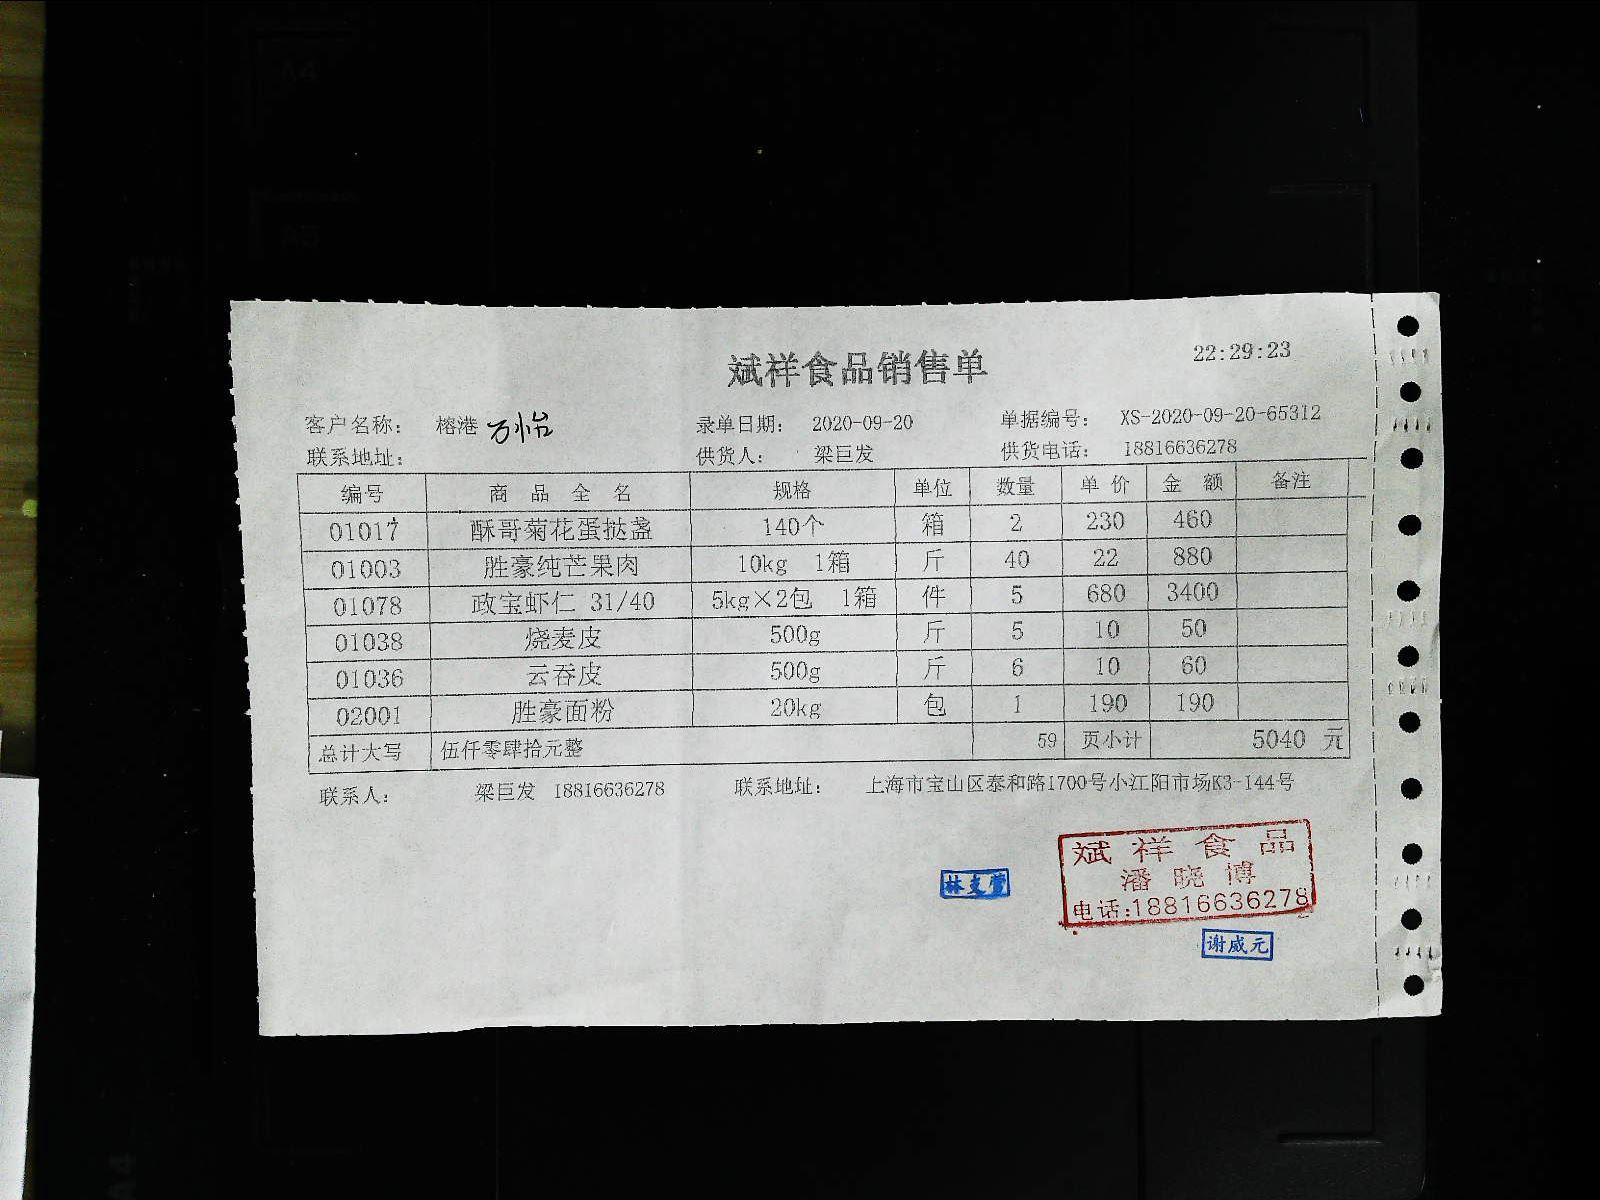 斌祥食品销售单 22:29:23
客户名称: 榕港 万怡 录单日期: 2020-09-20 单据编号: XS-2020-09-20-65312
联系地址: 供货人: 梁巨发 供货电话: 18816636278
编号 商品全名 规格 单位 数量 单价 金额 备注
01017 酥哥菊花蛋挞盏 140个 箱 2 230 460
01003 胜豪纯芒果肉 10kg 1箱 斤 40 22 880
01078 政宝虾仁 31/40 5kg×2包 1箱 件 5 680 3400
01038 烧麦皮 500g 斤 5 10 50
01036 云吞皮 500g 斤 6 10 60
02001 胜豪面粉 20kg 包 1 190 190
总计大写 伍仟零肆拾元整 59 页小计 5040 元
联系人: 梁巨发 18816636278 联系地址: 上海市宝山区泰和路1700号小江阳市场K3-144号
斌祥食品
潘晓博
电话:18816636278
林支萱
谢威元
A4
A5
A4